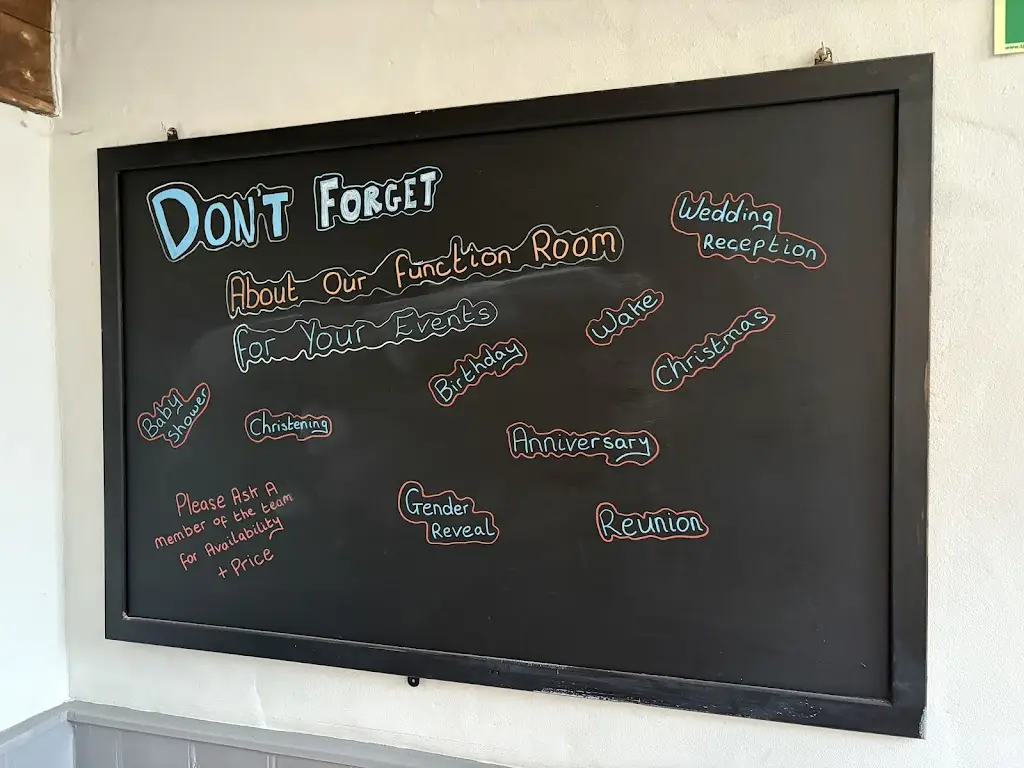 DON'T FORGET
About Our function Room
for Your Events
Wedding
Reception
Wake
Christmas
Birthday
Baby
Shower
Christening
Anniversary
Gender
Reveal
Reunion
Please Ask A
member of the team
for Availability
+ Price